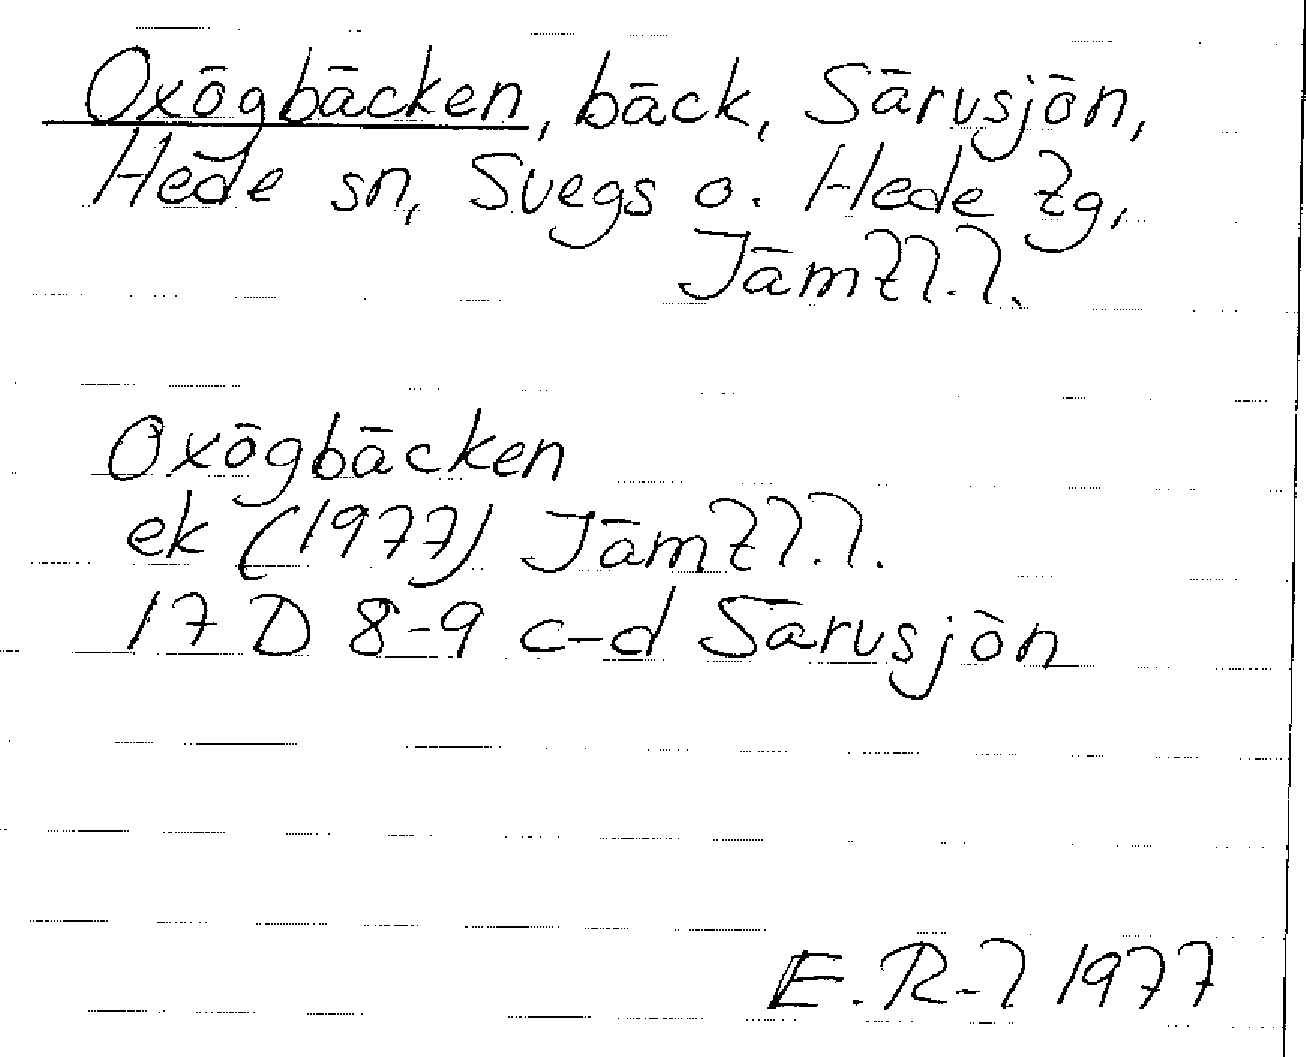 Oxögbäcken, bäck, Särvsjön,
Hede sn, Svegs o. Hede tg,
Jämtl.l.
Oxögbäcken
ek (1977) Jämtl.l.
17 D 8-9 c-d Särvsjön
E.R-l 1977